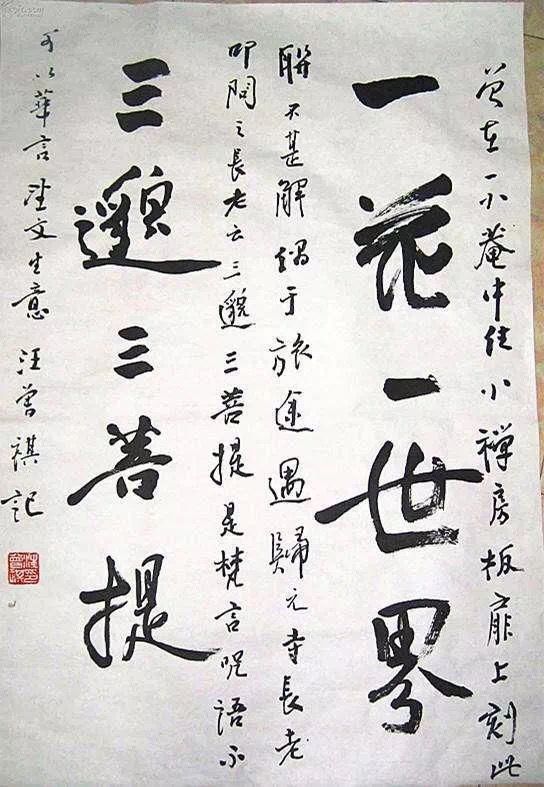 曾在一小庵中住小禅房板扉上刻此
一花一世界
联不甚解 于旅途遇归元寺长老
叩问之长老云三邈三菩提是梵言咒语不
三邈三菩提
可以华言望文生意 汪曾祺记